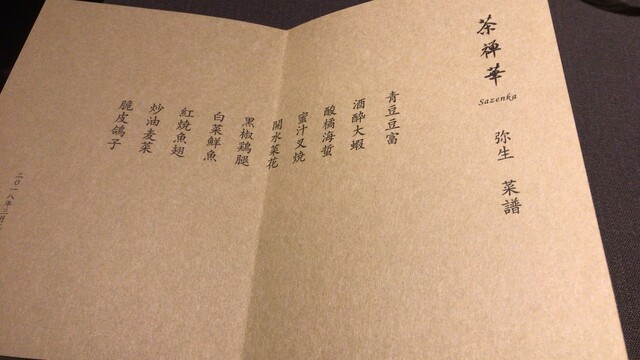 茶禅華
Sazenka
弥生 菜譜
青豆豆富
酒酔大蝦
酸橘海蜇
蜜汁叉焼
開水菜花
黒椒鶏腿
白菜鮮魚
紅焼魚翅
炒油麦菜
脆皮鴿子
二〇一八年三月